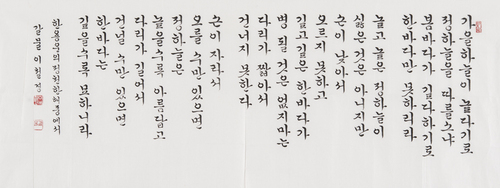 가을하늘이 높다기로
정하늘을 따를소냐
봄바다가 깊다기로
한바다만 못하리라
높고 높은 정하늘이
싫은 것은 아니지만
손이 낮아서
오르지 못하고
깊고 깊은 한바다가
병 될 것은 없지마는
다리가 짧아서
건너지 못한다
손이 자라서
오를 수만 있으면
정하늘은
높을수록 아름답고
다리가 길어서
건널 수만 있으면
한바다는
깊을수록 묘하니라
한용운의 정천한해 중에서
갈물 이철경